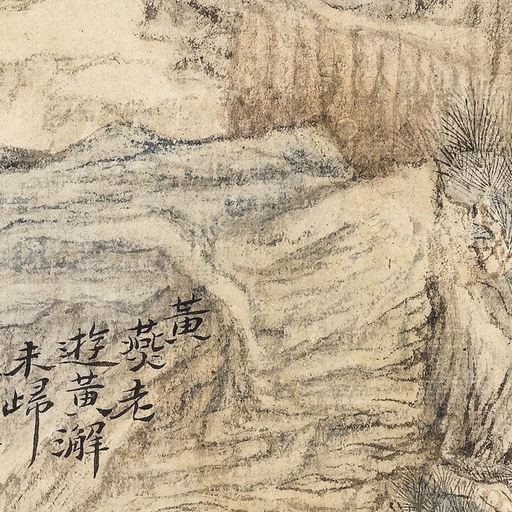 黃
燕老
遊黃澥
未歸